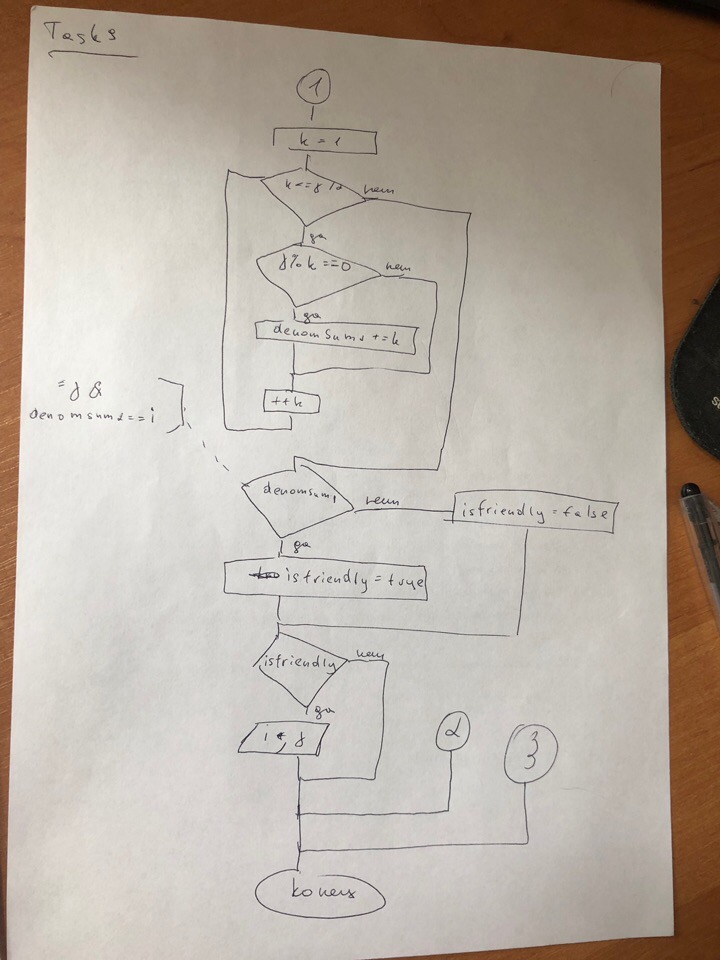 Task 3
1
k = 1
k <= j / 2
нет
да
j % k == 0
нет
да
denomSum2 += k
++k
= j &
denomsum2 == i
denomsum1
нет
isfriendly = false
да
isfriendly = true
isfriendly
нет
да
i, j
2
3
конец